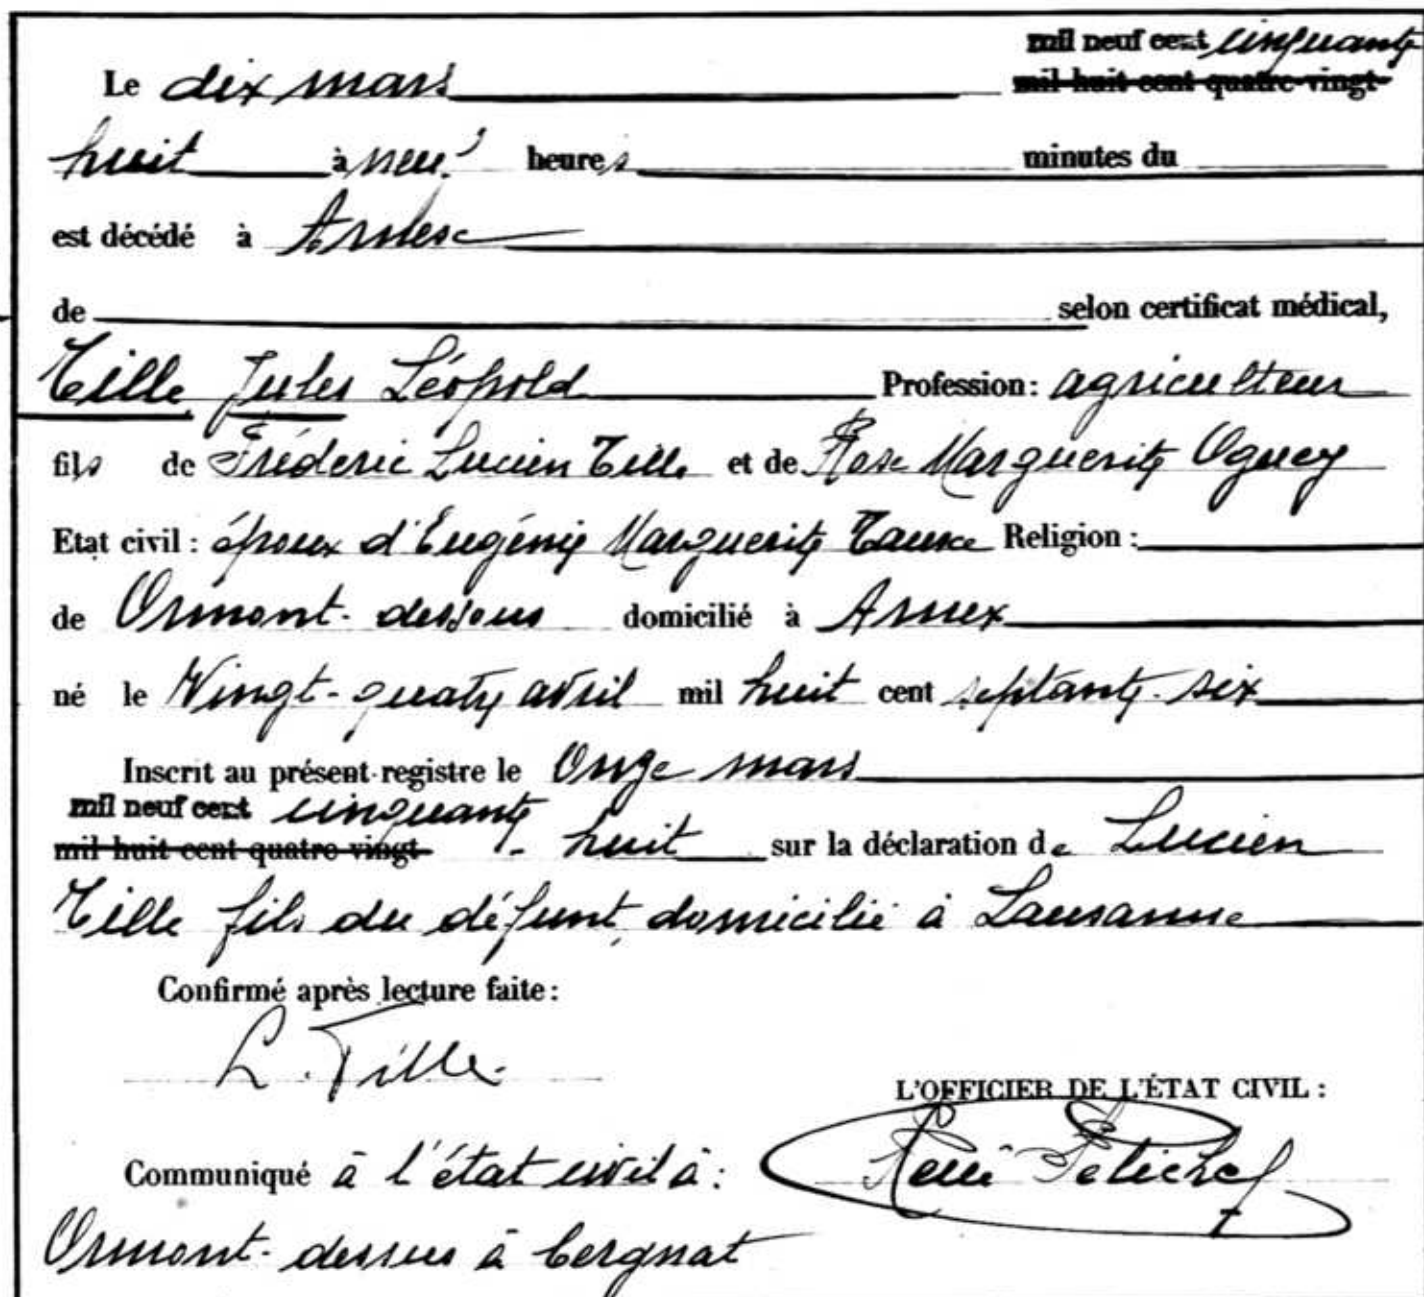 mil neuf cent cinquante
Le dix mars mil huit cent quatre-vingt-
huit à neuf heures minutes du
est décédé à Arnex
de selon certificat médical,
Tille Jules Léopold Profession: agriculteur
fils de Fréderic Lucien Tille et de Rose Marguerite Oguey
Etat civil: époux d'Eugénie Marguerite Religion:
de Ormont-dessous domicilié à Arnex
né le Vingt-quatre avril mil huit cent septante-six
Inscrit au présent registre le Onze mars
mil neuf cent cinquante
mil huit cent quatre vingt- huit sur la déclaration de Lucien
Tille fils du défunt, domicilié à Lausanne
Confirmé après lecture faite:
L. Tille.
L'OFFICIER DE L'ÉTAT CIVIL:
Communiqué à l'état civil à:
Ormont-dessus à Cergnat